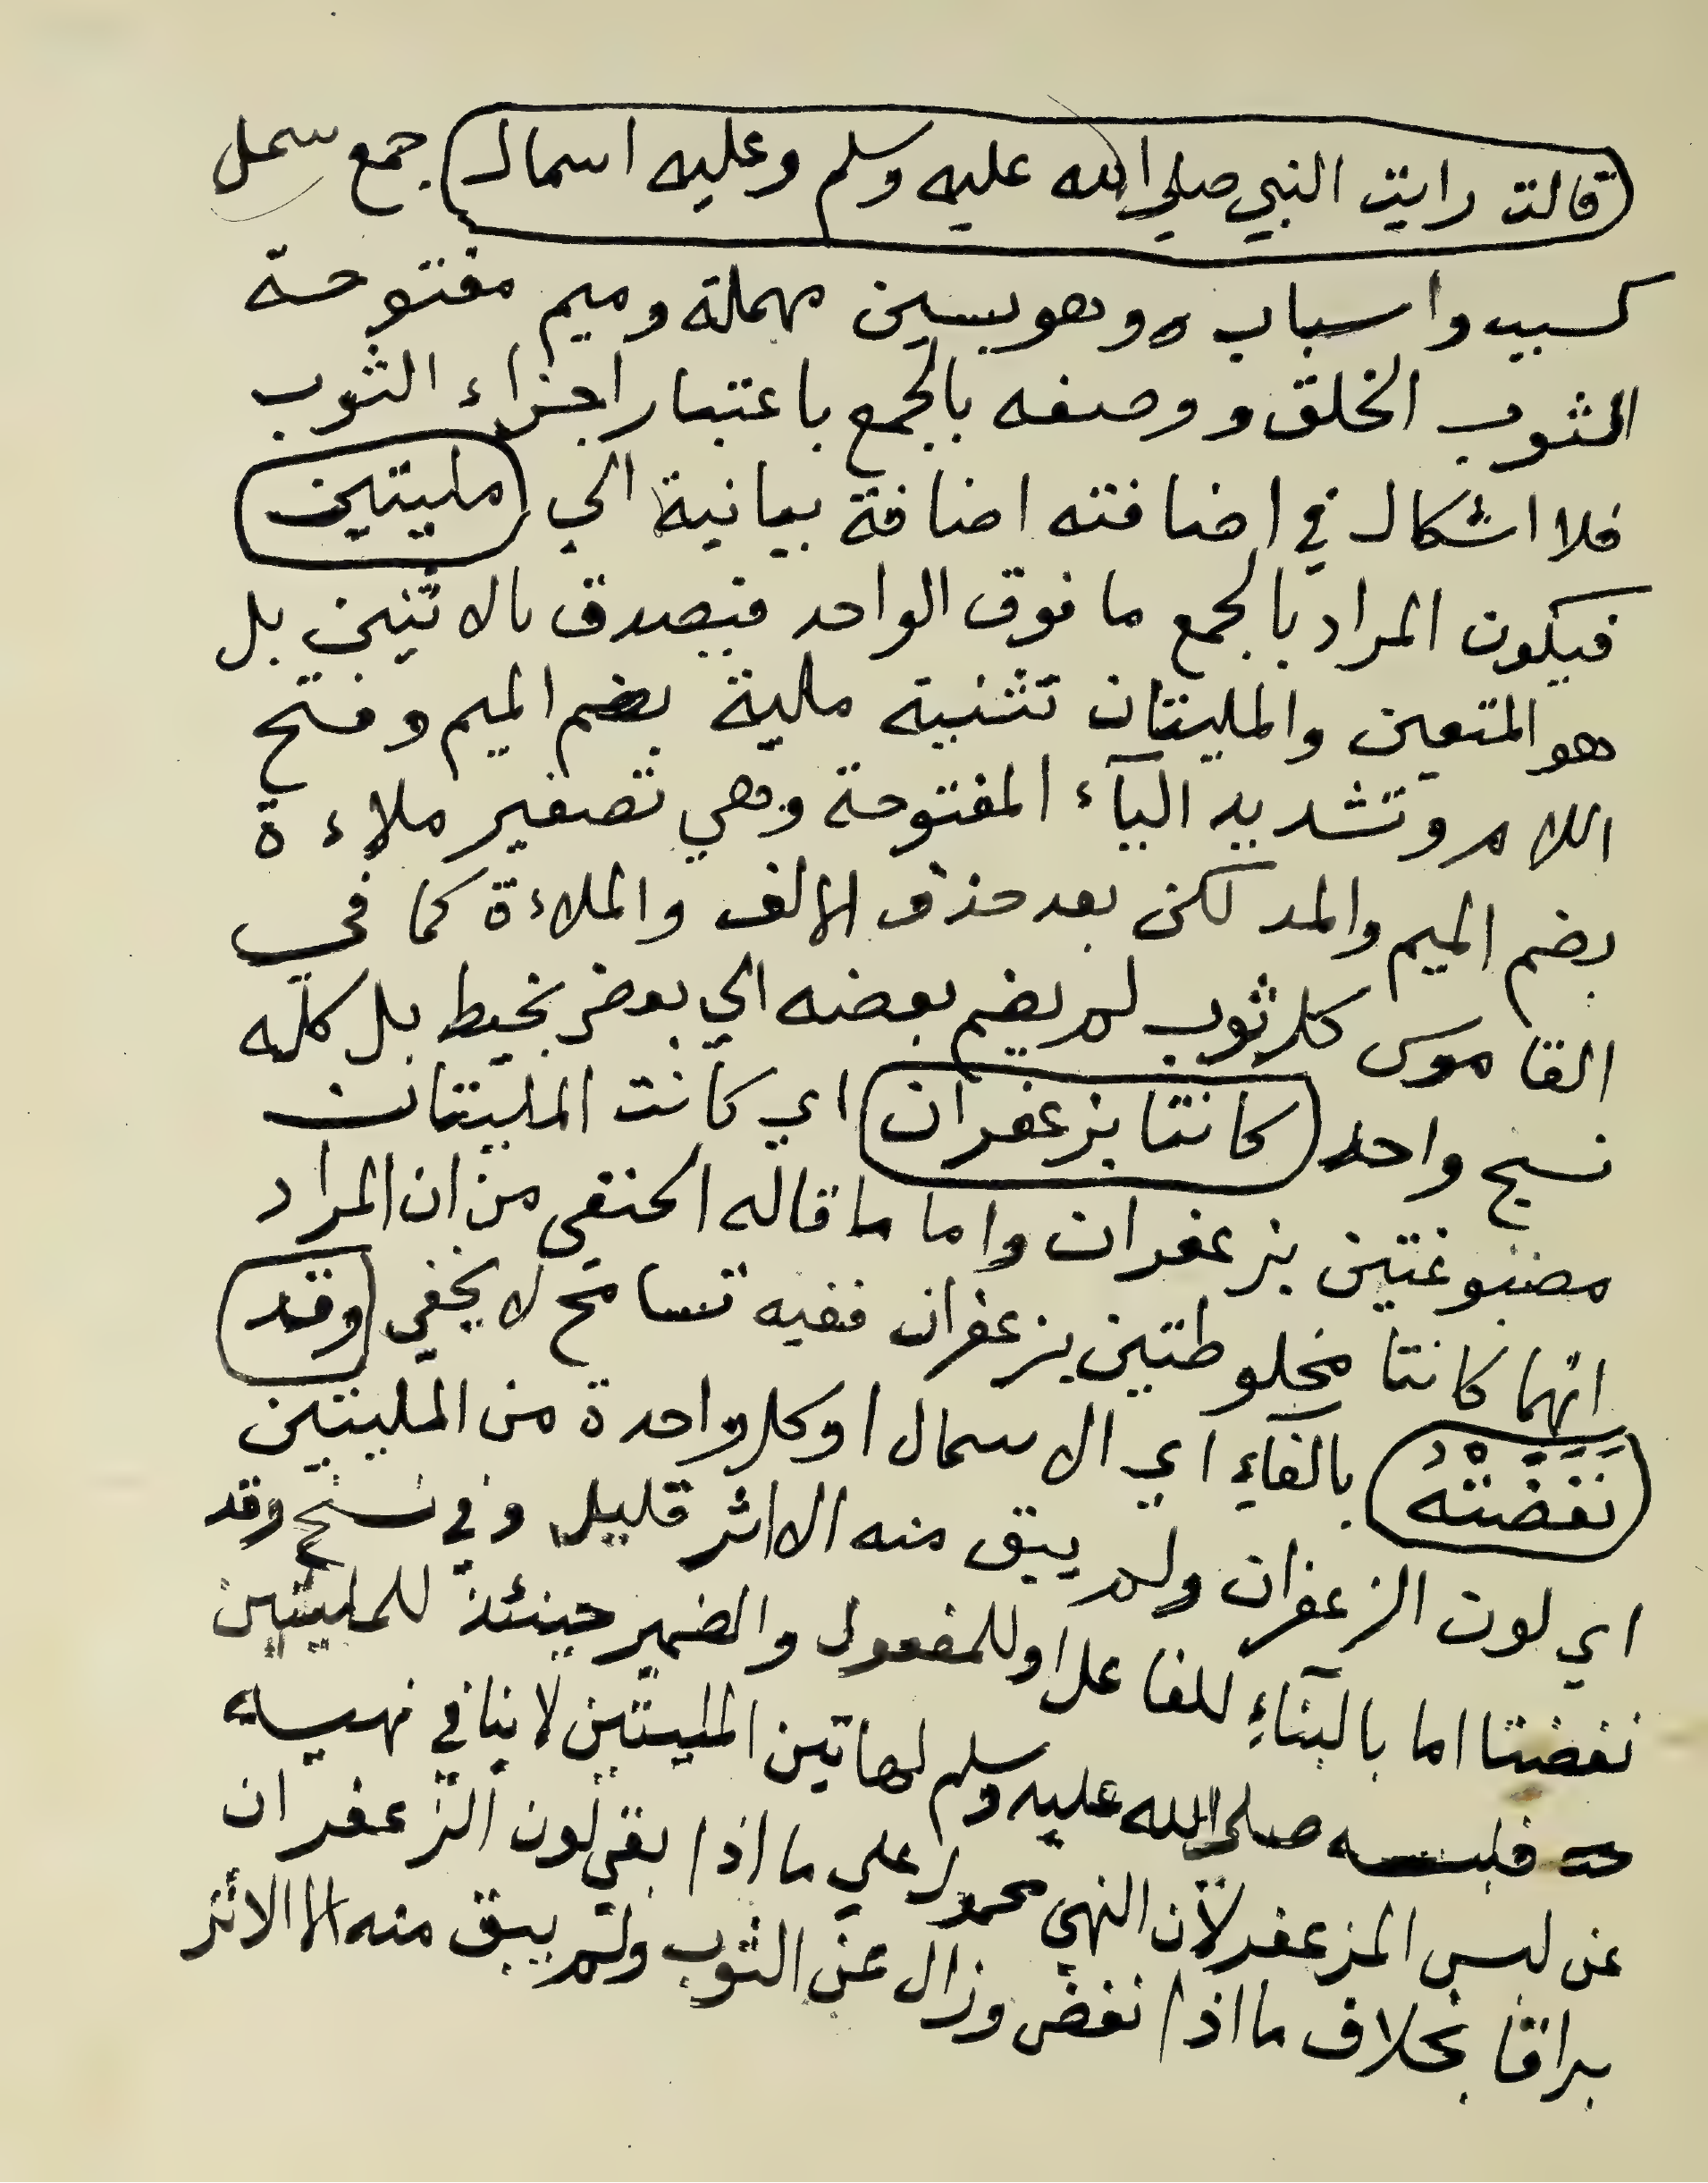 قالت رايت النبي صلي الله عليه وسلم وعليه اسمال جمع سمل
كسبب واسباب ه وهو بسين مهملة وميم مفتوحة
الثوب الخلق و وصفه بالجمع باعتبار اجزاء الثوب
فلا اشكال في اضافته اضافة بيانية الي مليتين
فيكون المراد بالجمع ما فوق الواحد فيصدق بالاثنين بل
هو المتعين والمليتان تثنية ملية بضم الميم وفتح
اللام وتشديد اليآء المفتوحة وهي تصغير ملاءة
بضم الميم والمد لكن بعد حذف الالف والملاءة كما في
القاموس كل ثوب لم يضم بعضه الي بعض بخيط بل كله
نسج واحد كانتا بزعفران اي كانت المليتان
مصبوغتين بزعفران واما ما قاله الحنفي من ان المراد
انهما كانتا مخلوطتين بزعفران ففيه تسامح لا يخفي وقد
نَفَضَتْهُ بالفآءِ اي الاسمال او كل واحدة من المليتين
اي لون الزعفران ولم يبق منه الا اثر قليل وفي نسخ وقد
نفضتا اما بالبنآءِ للفاعل او للمفعول والضمير حينئذ للمليتين
فلبسه صلى الله عليه وسلم لهاتين المليتين لا ينافي نهيه
عن لبس المزعفر لأن النهي محمول علي ما اذا بقي لون الزعفران
براقا بخلاف ما اذا نفض وزال عن الثوب ولم يبق منه الا الاثر